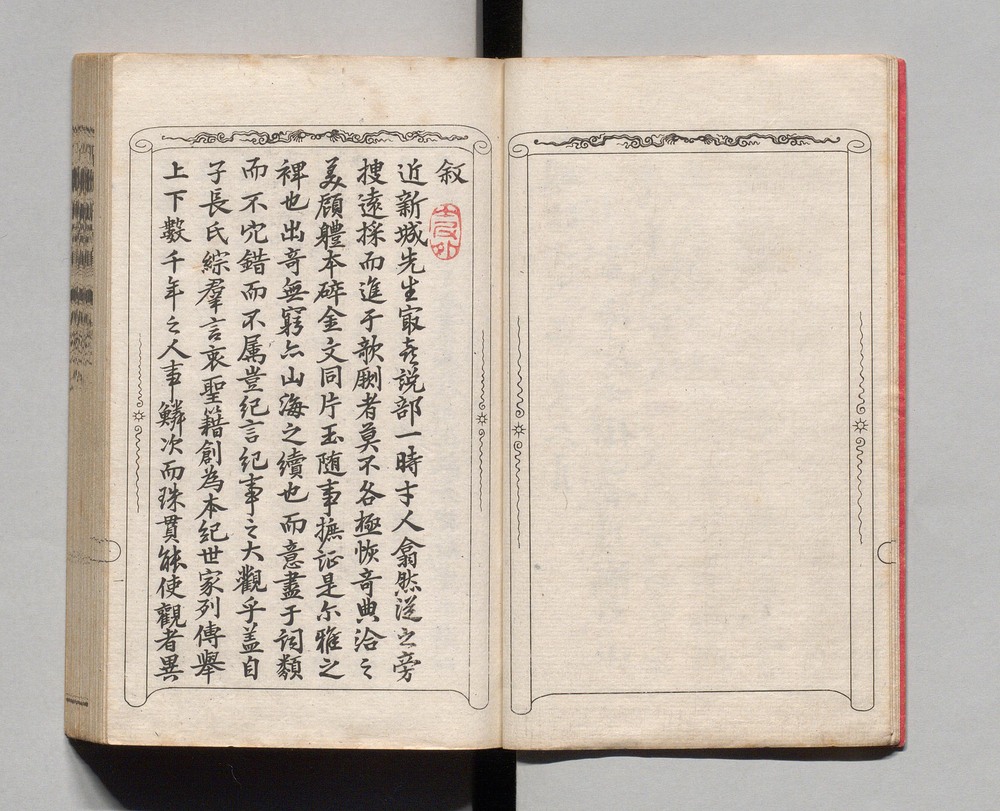 叙
近新城先生㝡𠮷説部一時才人翕然従之旁
搜遠採而進于歆劂者莫不各極恢竒典洽之
美顧軆本碎金文同片玉随事摭証是尒雅之
裨也出竒無窮亦山海之續也而意盡于詞類
而不宂錯而不属豈紀言紀事之大觀乎盖自
子長氏綜羣言衷聖籍創為本紀世家列傳舉
上下數千年之人事鱗次而珠貫能使觀者異